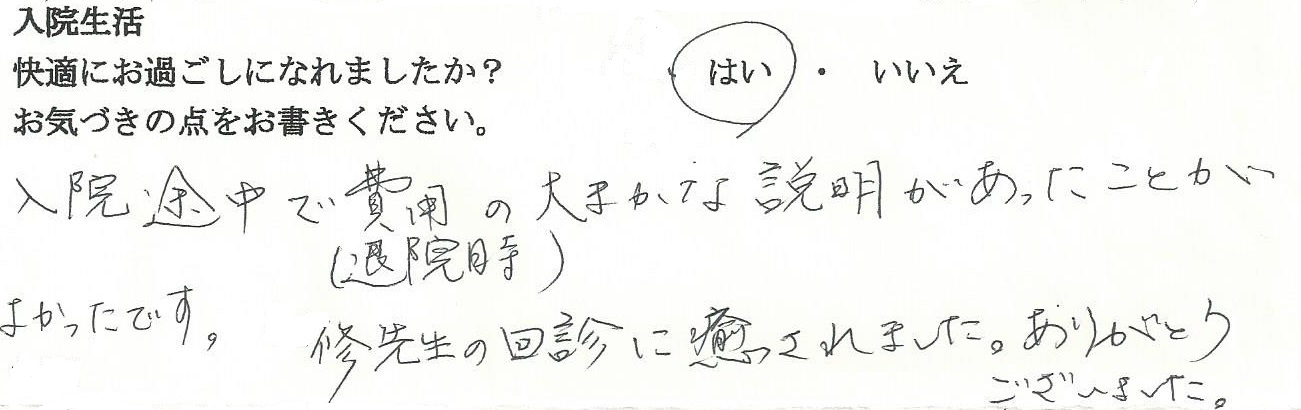 入院生活
快適にお過ごしになれましたか? はい ・ いいえ
お気づきの点をお書きください。
入院途中で費用の大まかな説明があったことが
(退院時)
よかったです。
修先生の回診に癒されました。ありがとう
ございました。